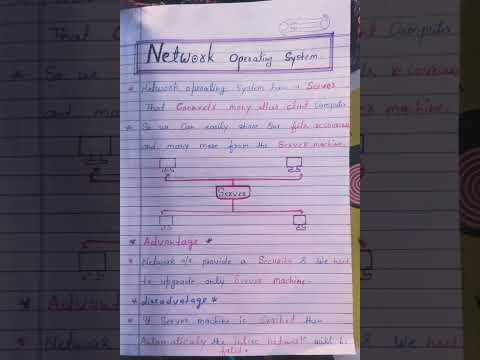 Network Operating System
* Network operating System have a Server
That Connects many other clint Computer
* So we Can easily share Our file resources
and many more from the Server machine.
Server
* Advantage *
* Network o/s provide a Security & We need
to upgrade only Server machine.
* disadvatage *
* If Server machine is Crashed then
Automaticaly the intire network will be
failed.